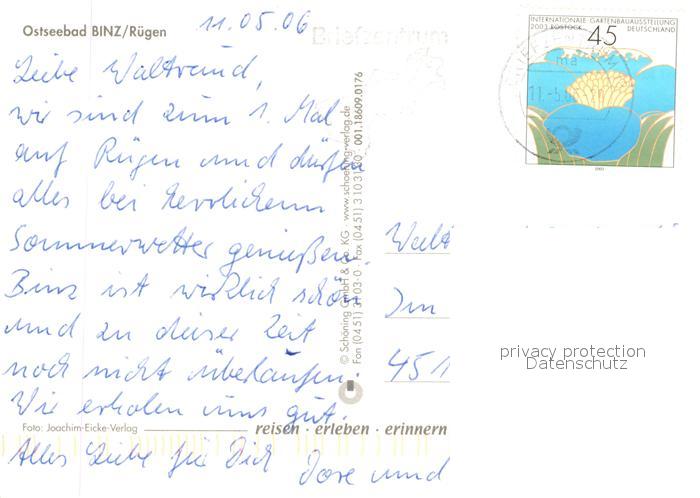 11.05.06
Ostseebad BINZ/Rügen
Briefzentrum
INTERNATIONALE GARTENBAUAUSSTELLUNG
2003 ROSTOCK
45
DEUTSCHLAND
Liebe Waltraud,
wir sind zum 1. Mal
auf Rügen und dürfen
alles bei herrlichem
Sommerwetter genießen.
Binz ist wirklich schön
und zu dieser Zeit
noch nicht überlaufen.
Wir erholen uns gut.
Alles Liebe für Dich
Dore und
© Schöning GmbH & Co. KG · www.schoening-verlag.de
Fon (04 51) 3 10 3-0 · Fax (04 51) 3 10 31 30 001.18609.0176
Walt
Im
451
privacy protection
Datenschutz
Foto: Joachim-Eicke-Verlag
reisen · erleben · erinnern